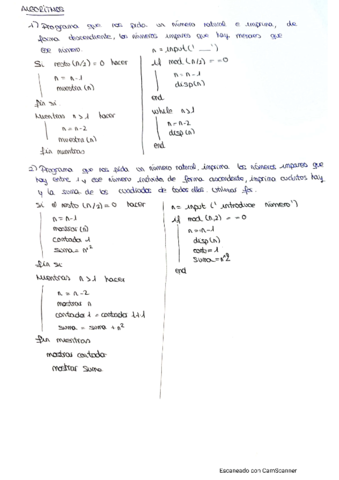 ALGORITMOS
1) Programa que nos pida un número natural e imprima, de
forma descendente, los números impares que hay menores que
ese número.
n = input(' ___ ')
Si resto (n/2) = 0 hacer
n = n-1
muestra (n)
fin si
Mientras n > 1 hacer
n = n-2
muestra (n)
fin mientras
if mod (n/2) = = 0
n = n-1
disp(n)
end
while n>1
n = n-2
disp(n)
end
2) Programa que nos pida un número natural, imprima los números impares que
hay entre 1 y ese número incluido de forma ascendente, imprima cuántos hay
y la suma de los cuadrados de todos ellos. Utilizar for.
Si el resto (n/2) = 0 hacer
n = n-1
mostrar (n)
contador 1
suma = n²
fin si
Mientras n > 1 hacer
n = n-2
mostrar n
contador 1 = contador 1+1
suma = suma + n²
fin mientras
mostrar contador
mostrar suma
n = input (' introduce número')
if mod (n,2) = = 0
n = n-1
disp(n)
cont = 1
suma = n^2
end
Escaneado con CamScanner